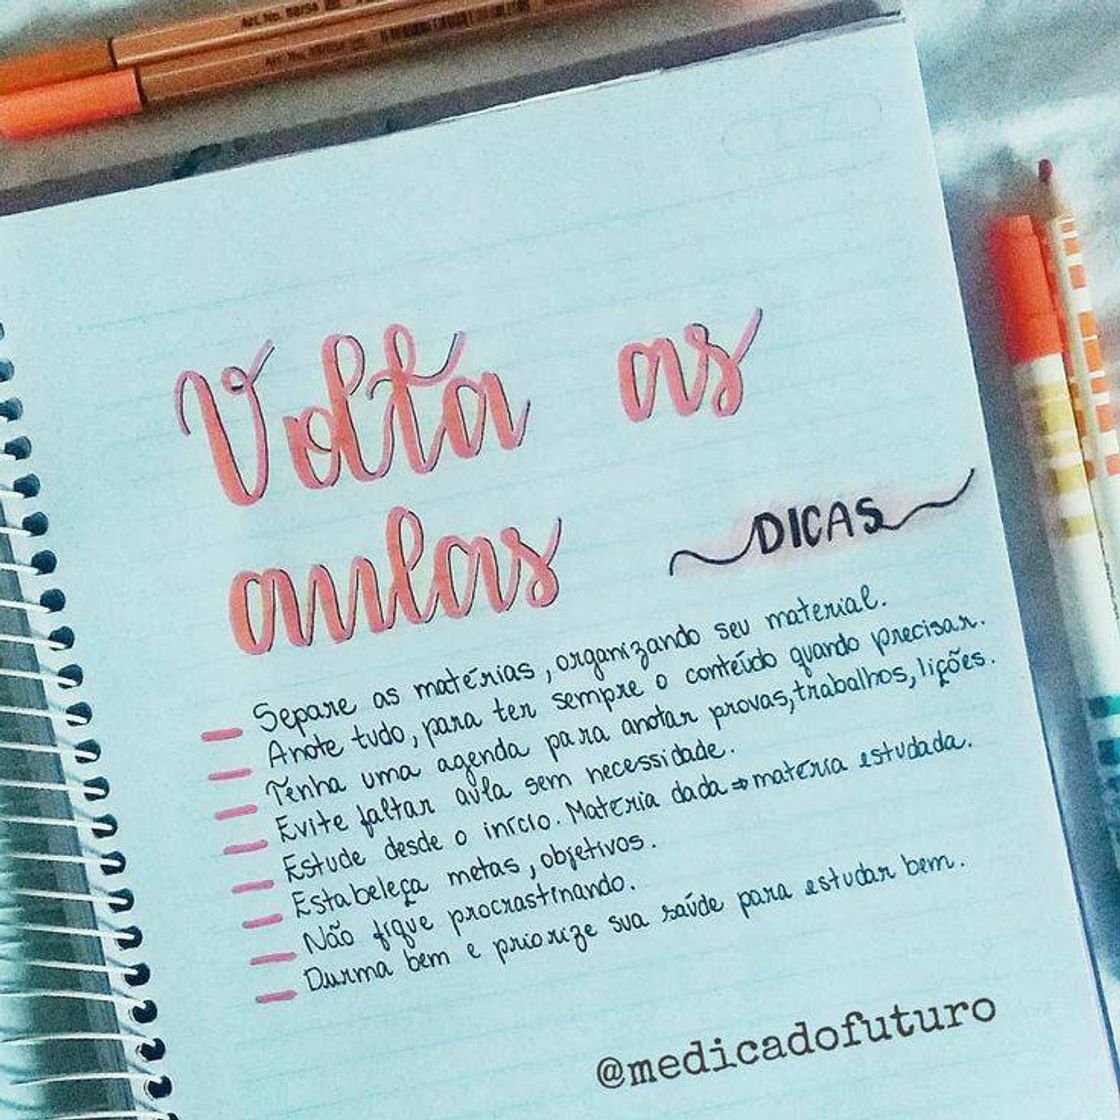 Volta as
aulas
DICAS
Separe as matérias, organizando seu material.
Anote tudo, para ter sempre o conteúdo quando precisar.
Tenha uma agenda para anotar provas, trabalhos, lições.
Evite faltar aula sem necessidade.
Estude desde o início. Materia dada ⇒ matéria estudada.
Estabeleça metas, objetivos.
Não fique procrastinando.
Durma bem e priorize sua saúde para estudar bem.
@medicadofuturo